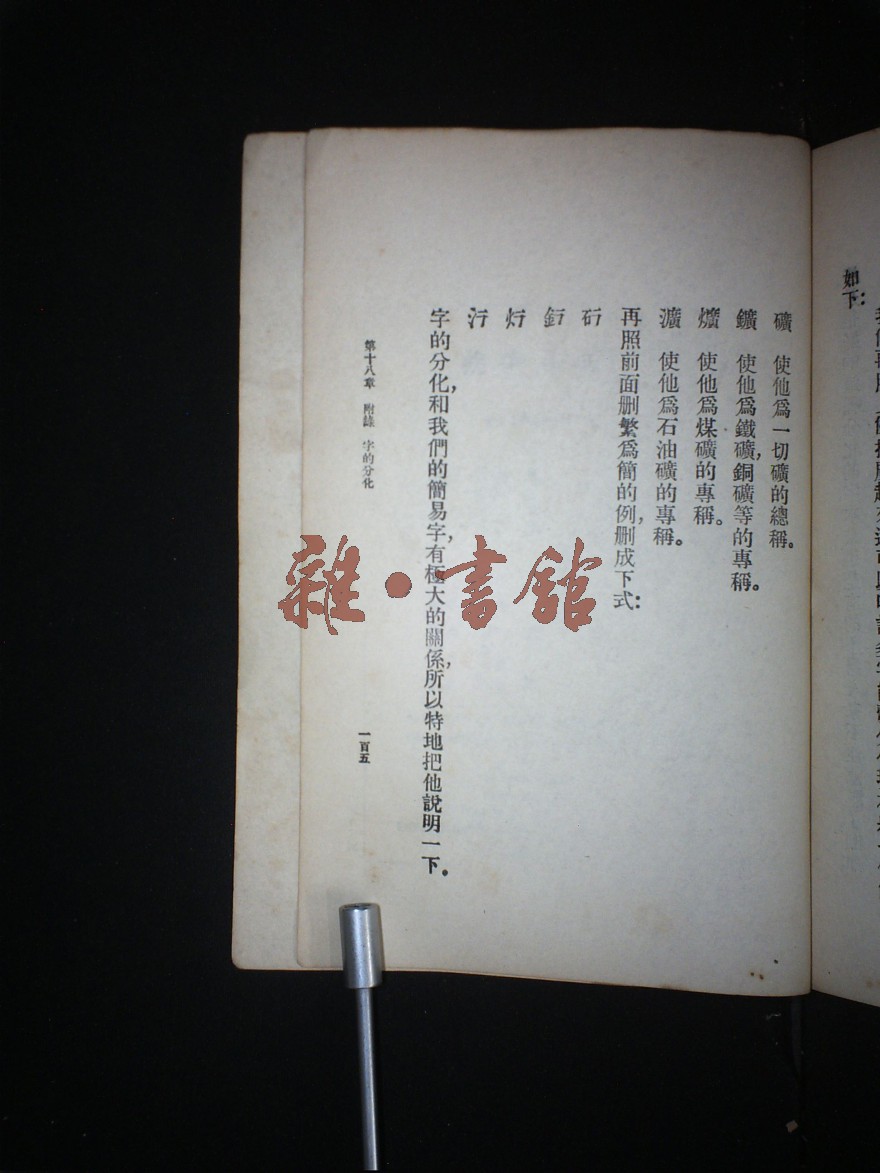 如下：
礦　使他爲一切礦的總稱。
鑛　使他爲鐵礦，銅礦等的專稱。
爌　使他爲煤礦的專稱。
瀇　使他爲石油礦的專稱。
再照前面删繁爲簡的例，删成下式：
字的分化，和我們的簡易字，有極大的關係，所以特地把他說明一下。
第十八章　附錄　字的分化
一百五
雜·書館